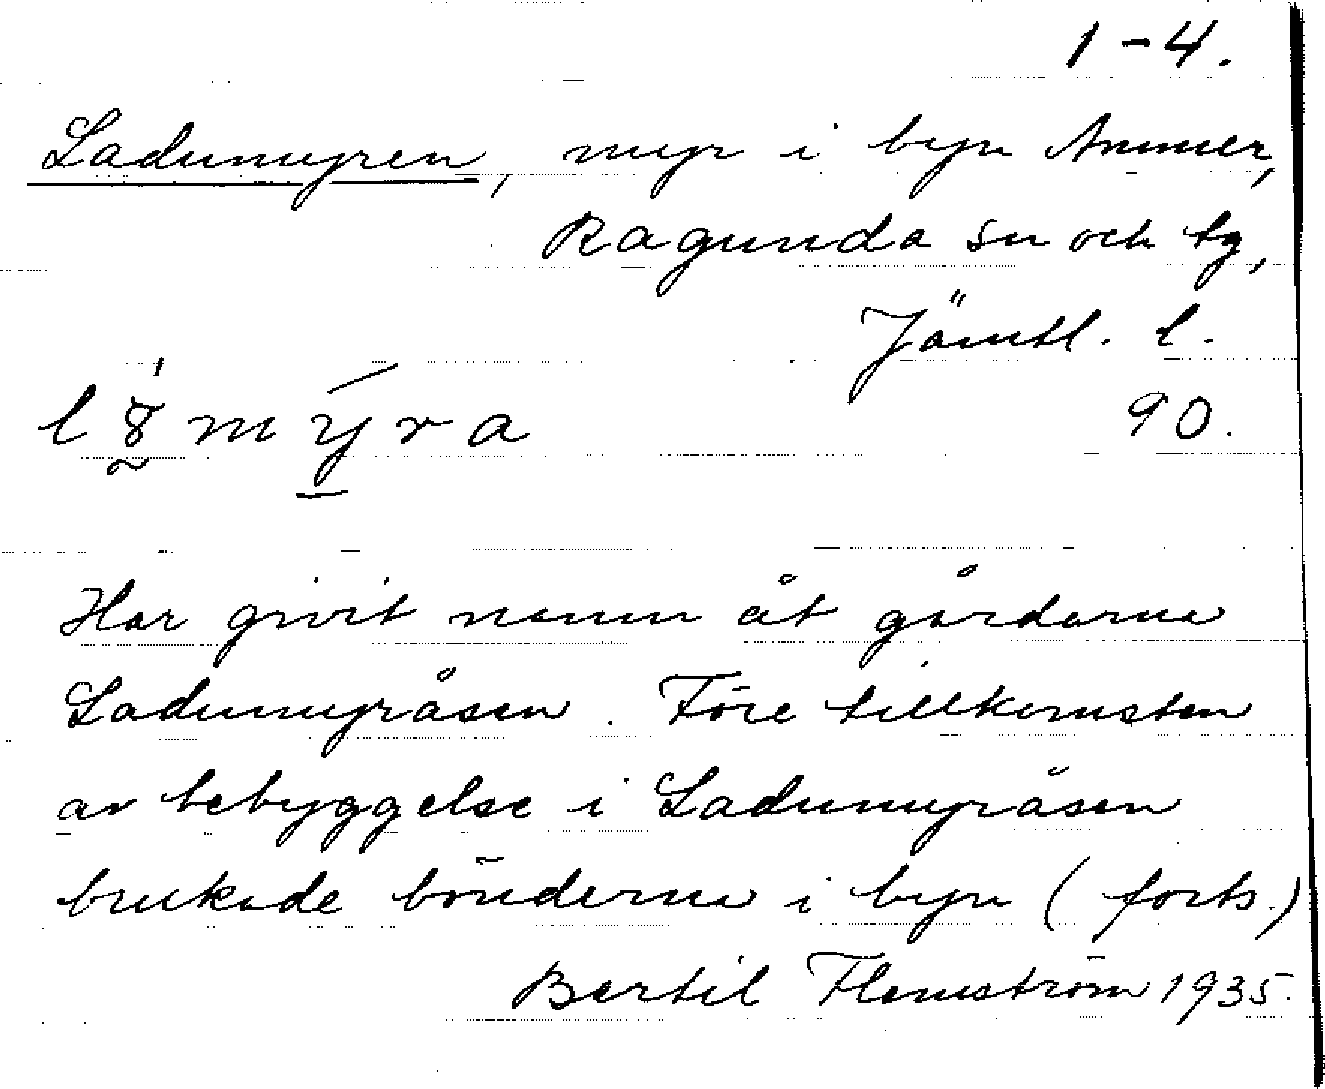 1-4.
Ladumyren, myr i byn Ammer,
Ragunda sn och tg,
Jämtl. l.
90.
Har givit namn åt gårdarna
Ladumyråsen. Före tillkomsten
av bebyggelse i Ladumyråsen
brukade bönderna i byn (forts.)
Bertil Flemström 1935.